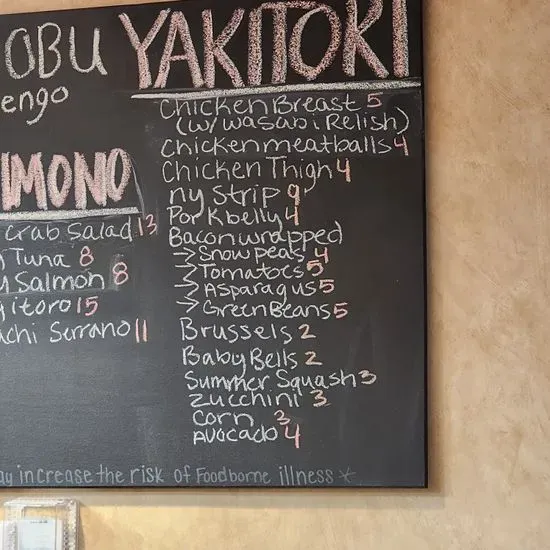 OBU
engo
IMONO
Crab Salad 13
Tuna 8
Salmon 8
itoro 15
achi Serrano 11
YAKITORI
Chicken Breast 5
(w/ wasabi Relish)
chicken meatballs 4
Chicken Thigh 4
ny strip 9
Pork belly 4
Bacon wrapped
→ Snow peas 4
→ Tomatoes 5
→ Asparagus 5
→ Green Beans 5
Brussels 2
Baby Bells 2
Summer Squash 3
Zucchini 3
Corn 3
Avocado 4
ay increase the risk of Foodborne illness *